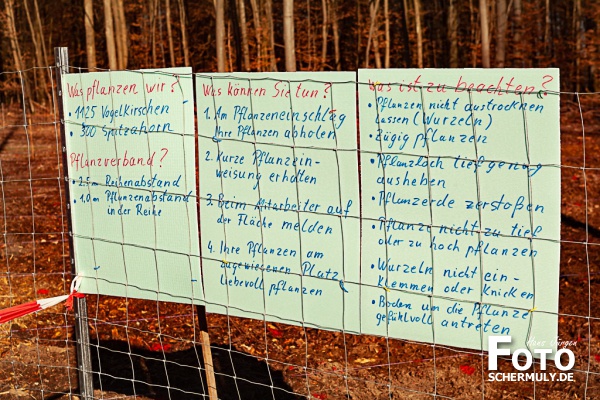 Was pflanzen wir?
• 1125 Vogelkirschen
• 500 Spitzahorn
Pflanzverband?
• 2,5 m Reihenabstand
• 1,0 m Pflanzenabstand
in der Reihe
Was können Sie tun?
1. Am Pflanzeneinschlag
Ihre Pflanzen abholen
2. Kurze Pflanzein-
weisung erhalten
3. Beim Mitarbeiter auf
der Fläche melden
4. Ihre Pflanzen am
zugewiesenen Platz
liebevoll pflanzen
Was ist zu beachten?
• Pflanzen nicht austrocknen
lassen (Wurzeln)
• Zügig pflanzen
• Pflanzloch tief genug
ausheben
• Pflanzerde zerstoßen
• Pflanze nicht zu tief
oder zu hoch pflanzen
• Wurzeln nicht ein-
klemmen oder knicken
• Boden um die Pflanze
gefühlvoll antreten
Hans Jürgen
FOTO
SCHERMULY.DE